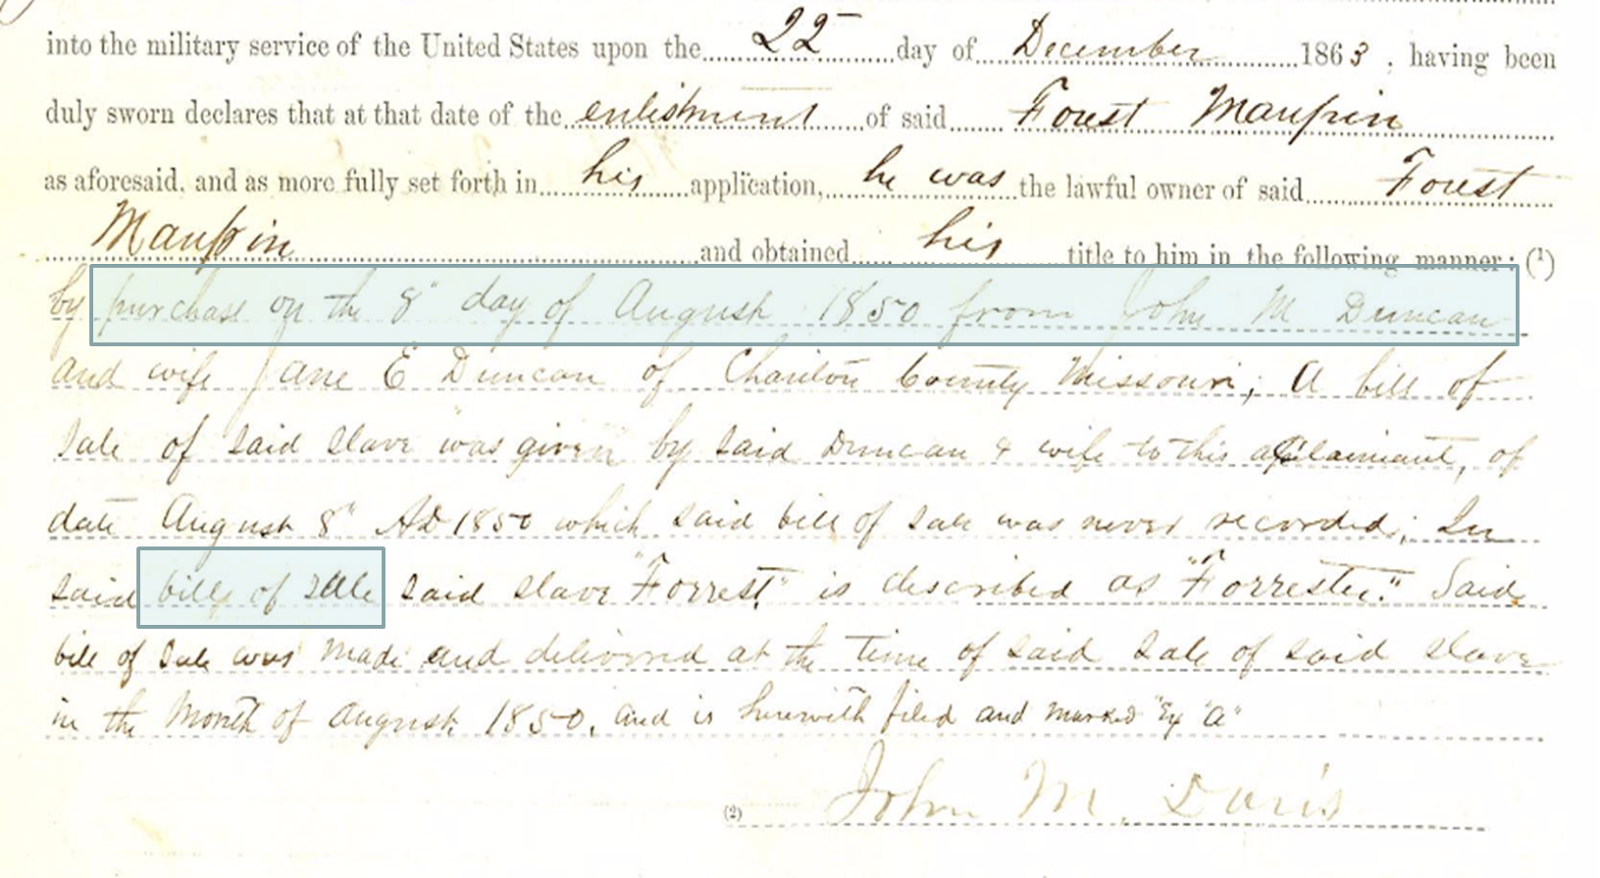 into the military service of the United States upon the 22 day of December 1863, having been
duly sworn declares that at that date of the enlistment of said Forest Maupin
as aforesaid, and as more fully set forth in his application, he was the lawful owner of said Forest
Maupin and obtained his title to him in the following manner: (1)
by purchase on the 8" day of August 1850 from John M Duncan
and wife Jane E Duncan of Chariton County Missouri; A bill of
Sale of said slave was given by said Duncan & wife to this Claimant, of
date August 8" AD 1850 which said bill of sale was never recorded; In
said bill of sale said slave "Forrest" is described as "Forrester." Said
bill of Sale was made and delivered at the time of said sale of said slave
in the Month of August 1850, and is herewith filed and marked "Ex "A"
(2) John M. Davis